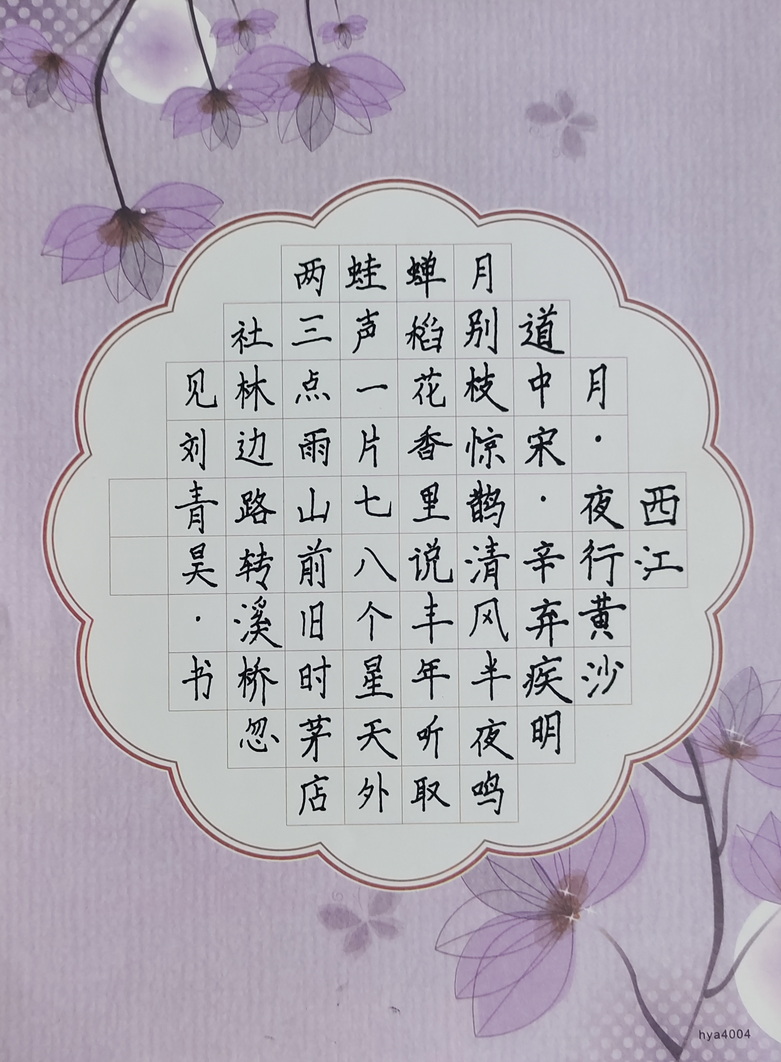 西江
月·夜行黄沙
道中宋·辛弃疾明
月别枝惊鹊清风半夜鸣
蝉稻花香里说丰年听取
蛙声一片七八个星天外
两三点雨山前旧时茅店
社林边路转溪桥忽
见刘青昊·书
hya4004